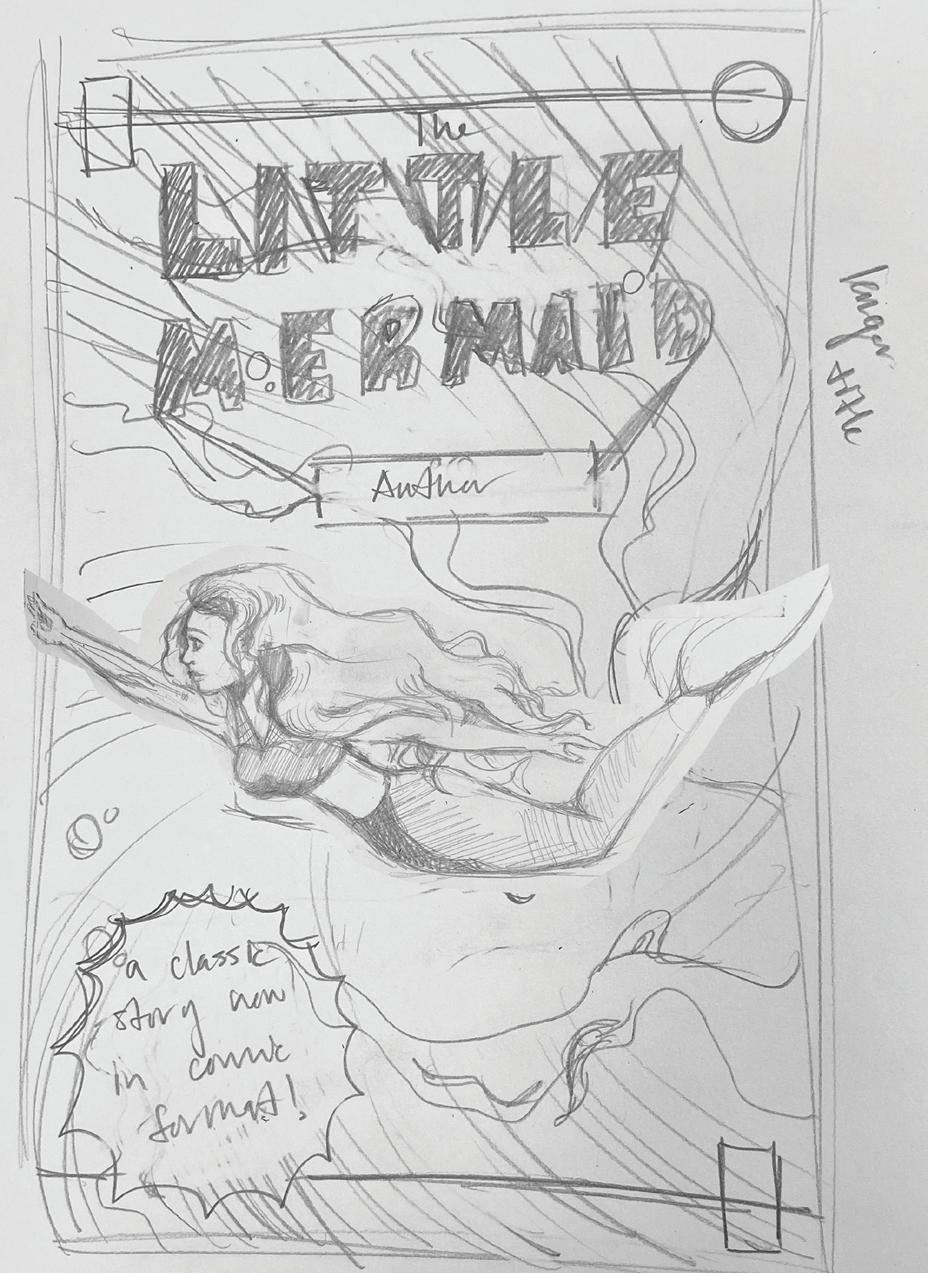 The
LITTLE
MERMAID
Author
a classic
story now
in comic
format!
title